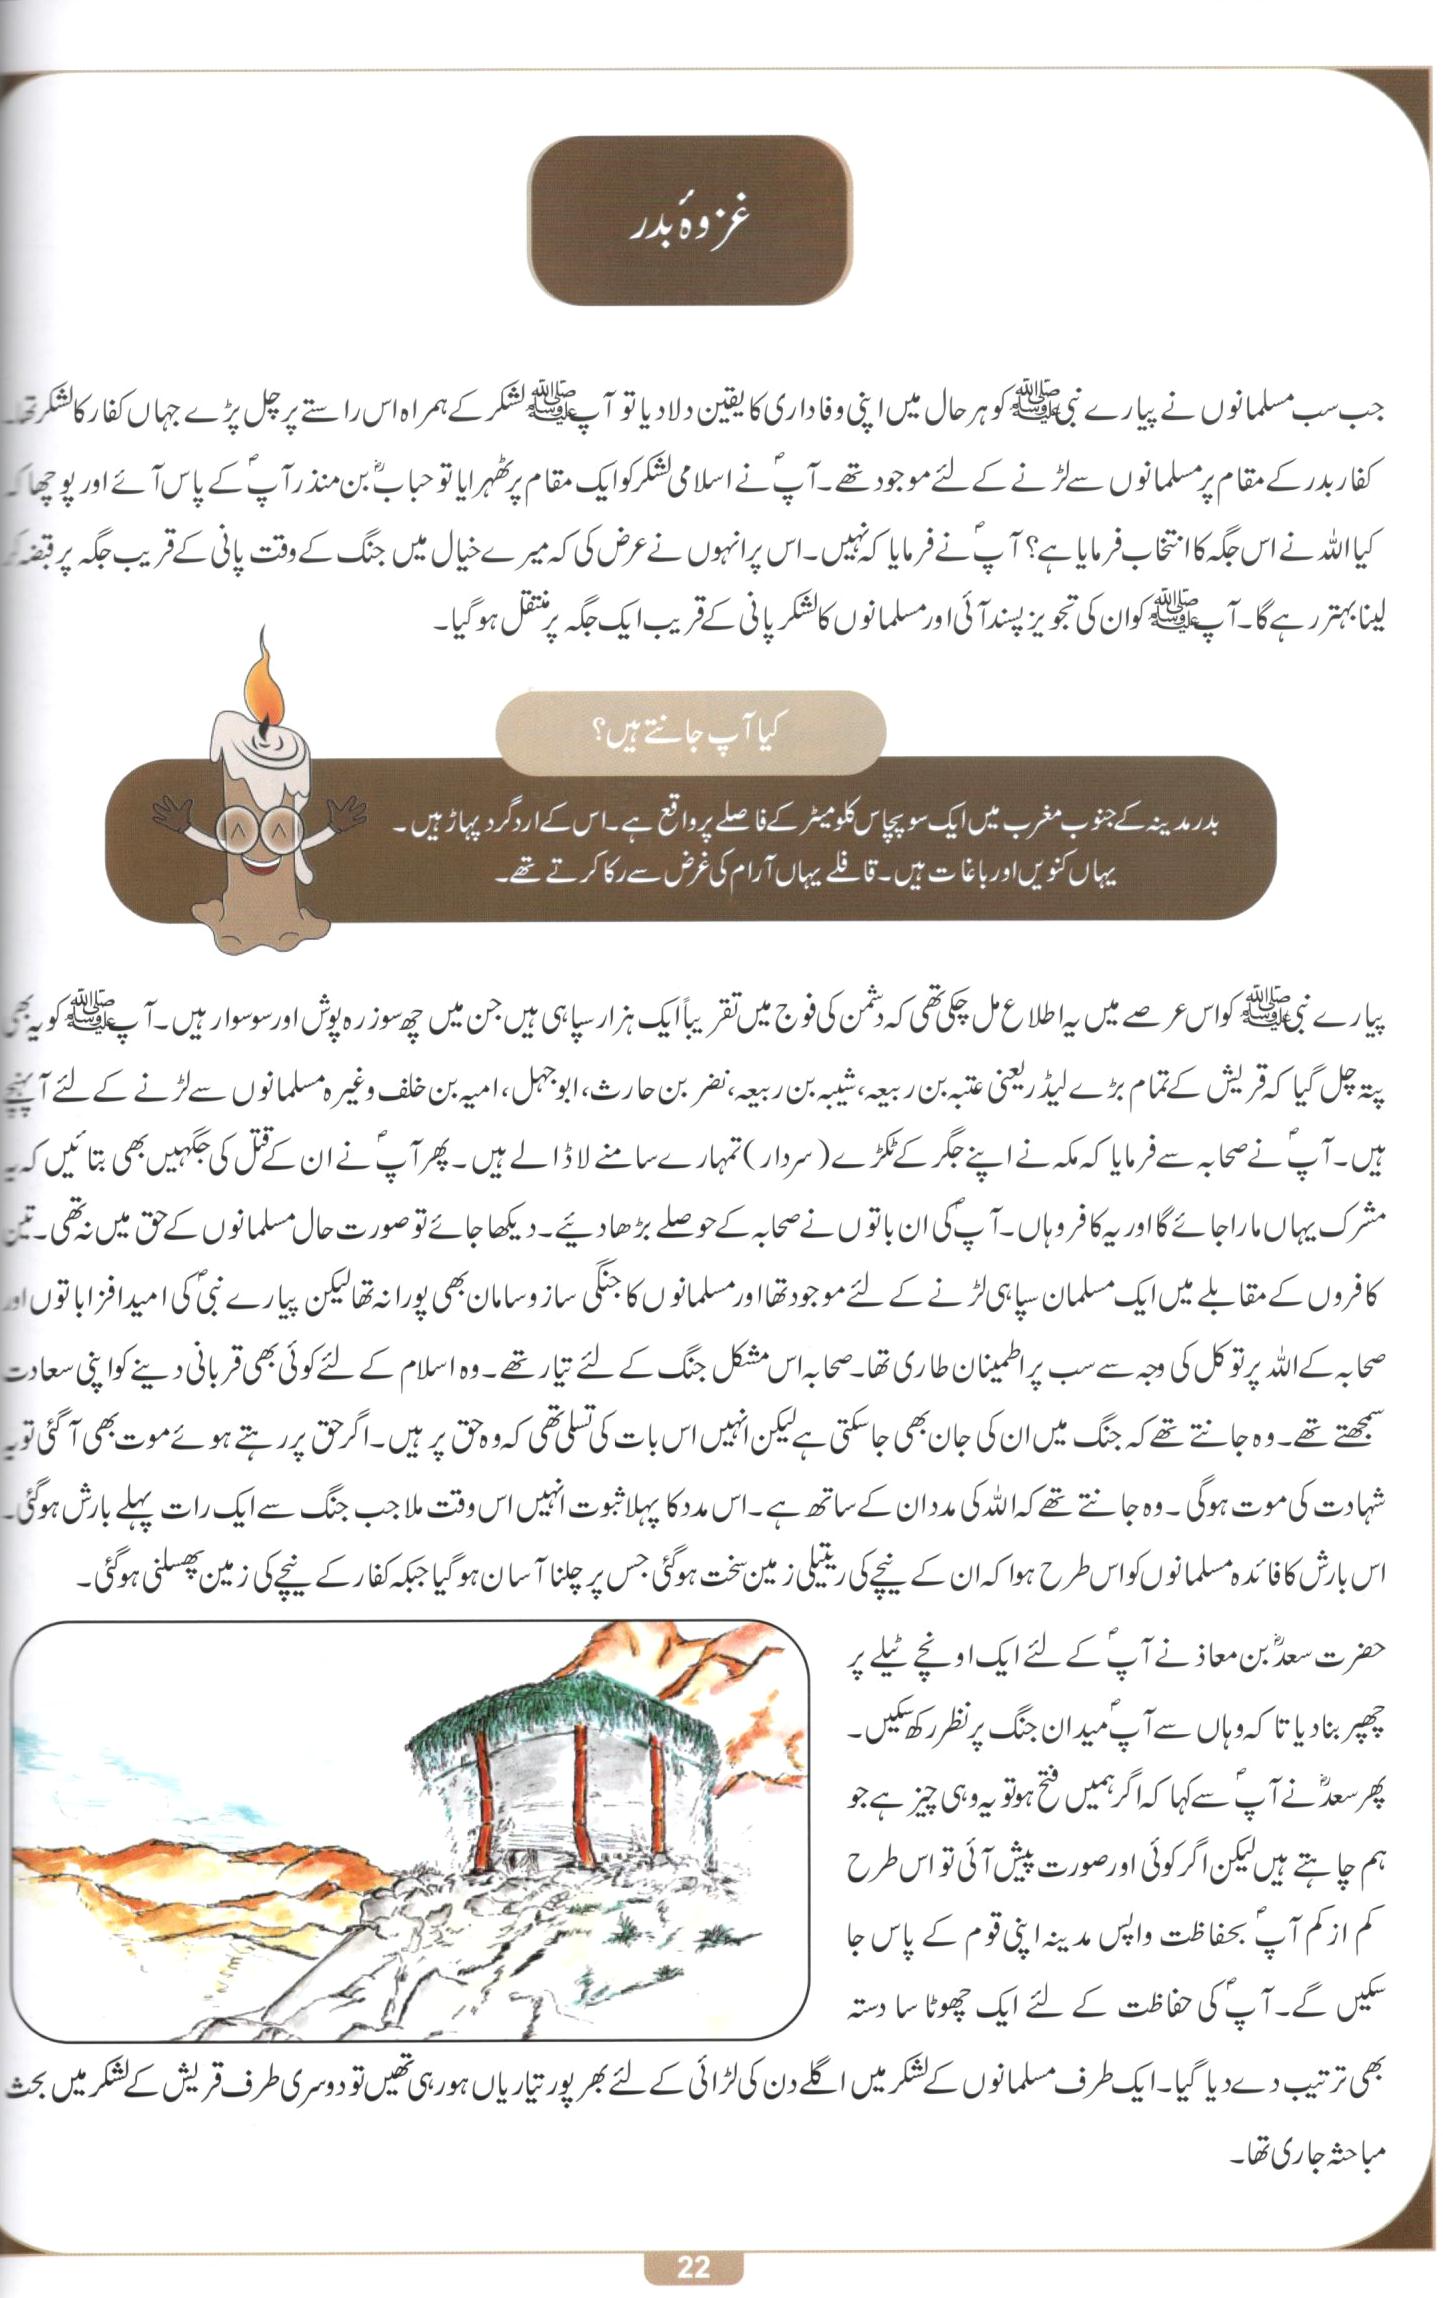 غزوۂ بدر
جب سب مسلمانوں نے پیارے نبیﷺ کو ہر حال میں اپنی وفاداری کا یقین دلا دیا تو آپﷺ لشکر کے ہمراہ اس راستے پر چل پڑے جہاں کفار کا لشکر تھا۔
کفار بدر کے مقام پر مسلمانوں سے لڑنے کے لئے موجود تھے۔ آپؐ نے اسلامی لشکر کو ایک مقام پر ٹھہرایا تو حبابؓ بن منذر آپؐ کے پاس آئے اور پوچھا کہ
کیا اللہ نے اس جگہ کا انتخاب فرمایا ہے؟ آپؐ نے فرمایا کہ نہیں۔ اس پر انہوں نے عرض کی کہ میرے خیال میں جنگ کے وقت پانی کے قریب جگہ پر قبضہ کر
لینا بہتر رہے گا۔ آپﷺ کو ان کی تجویز پسند آئی اور مسلمانوں کا لشکر پانی کے قریب ایک جگہ پر منتقل ہو گیا۔
کیا آپ جانتے ہیں؟
بدر مدینہ کے جنوب مغرب میں ایک سو پچاس کلومیٹر کے فاصلے پر واقع ہے۔ اس کے ارد گرد پہاڑ ہیں۔
یہاں کنویں اور باغات ہیں۔ قافلے یہاں آرام کی غرض سے رکا کرتے تھے۔
پیارے نبیﷺ کو اس عرصے میں یہ اطلاع مل چکی تھی کہ دشمن کی فوج میں تقریباً ایک ہزار سپاہی ہیں جن میں چھ سو زرہ پوش اور سو سوار ہیں۔ آپﷺ کو یہ بھی
پتہ چل گیا کہ قریش کے تمام بڑے لیڈر یعنی عتبہ بن ربیعہ، شیبہ بن ربیعہ، نضر بن حارث، ابوجہل، امیہ بن خلف وغیرہ مسلمانوں سے لڑنے کے لئے آ پہنچے
ہیں۔ آپؐ نے صحابہ سے فرمایا کہ مکہ نے اپنے جگر کے ٹکڑے (سردار) تمہارے سامنے لا ڈالے ہیں۔ پھر آپؐ نے ان کے قتل کی جگہیں بھی بتائیں کہ یہ
مشرک یہاں مارا جائے گا اور یہ کافر وہاں۔ آپؐ کی ان باتوں نے صحابہ کے حوصلے بڑھا دیئے۔ دیکھا جائے تو صورت حال مسلمانوں کے حق میں نہ تھی۔ تین
کافروں کے مقابلے میں ایک مسلمان سپاہی لڑنے کے لئے موجود تھا اور مسلمانوں کا جنگی ساز و سامان بھی پورا نہ تھا لیکن پیارے نبیؐ کی امید افزا باتوں اور
صحابہ کے اللہ پر توکل کی وجہ سے سب پر اطمینان طاری تھا۔ صحابہ اس مشکل جنگ کے لئے تیار تھے۔ وہ اسلام کے لئے کوئی بھی قربانی دینے کو اپنی سعادت
سمجھتے تھے۔ وہ جانتے تھے کہ جنگ میں ان کی جان بھی جا سکتی ہے لیکن انہیں اس بات کی تسلی تھی کہ وہ حق پر ہیں۔ اگر حق پر رہتے ہوئے موت بھی آ گئی تو یہ
شہادت کی موت ہوگی ۔ وہ جانتے تھے کہ اللہ کی مدد ان کے ساتھ ہے۔ اس مدد کا پہلا ثبوت انہیں اس وقت ملا جب جنگ سے ایک رات پہلے بارش ہوگئی۔
اس بارش کا فائدہ مسلمانوں کو اس طرح ہوا کہ ان کے نیچے کی ریتیلی زمین سخت ہوگئی جس پر چلنا آسان ہو گیا جبکہ کفار کے نیچے کی زمین پھسلنی ہوگئی۔
حضرت سعدؓ بن معاذ نے آپؐ کے لئے ایک اونچے ٹیلے پر
چھپر بنا دیا تا کہ وہاں سے آپؐ میدان جنگ پر نظر رکھ سکیں۔
پھر سعدؓ نے آپؐ سے کہا کہ اگر ہمیں فتح ہو تو یہ وہی چیز ہے جو
ہم چاہتے ہیں لیکن اگر کوئی اور صورت پیش آئی تو اس طرح
کم از کم آپؐ بحفاظت واپس مدینہ اپنی قوم کے پاس جا
سکیں گے۔ آپؐ کی حفاظت کے لئے ایک چھوٹا سا دستہ
بھی ترتیب دے دیا گیا۔ ایک طرف مسلمانوں کے لشکر میں اگلے دن کی لڑائی کے لئے بھر پور تیاریاں ہو رہی تھیں تو دوسری طرف قریش کے لشکر میں بحث
مباحثہ جاری تھا۔
22